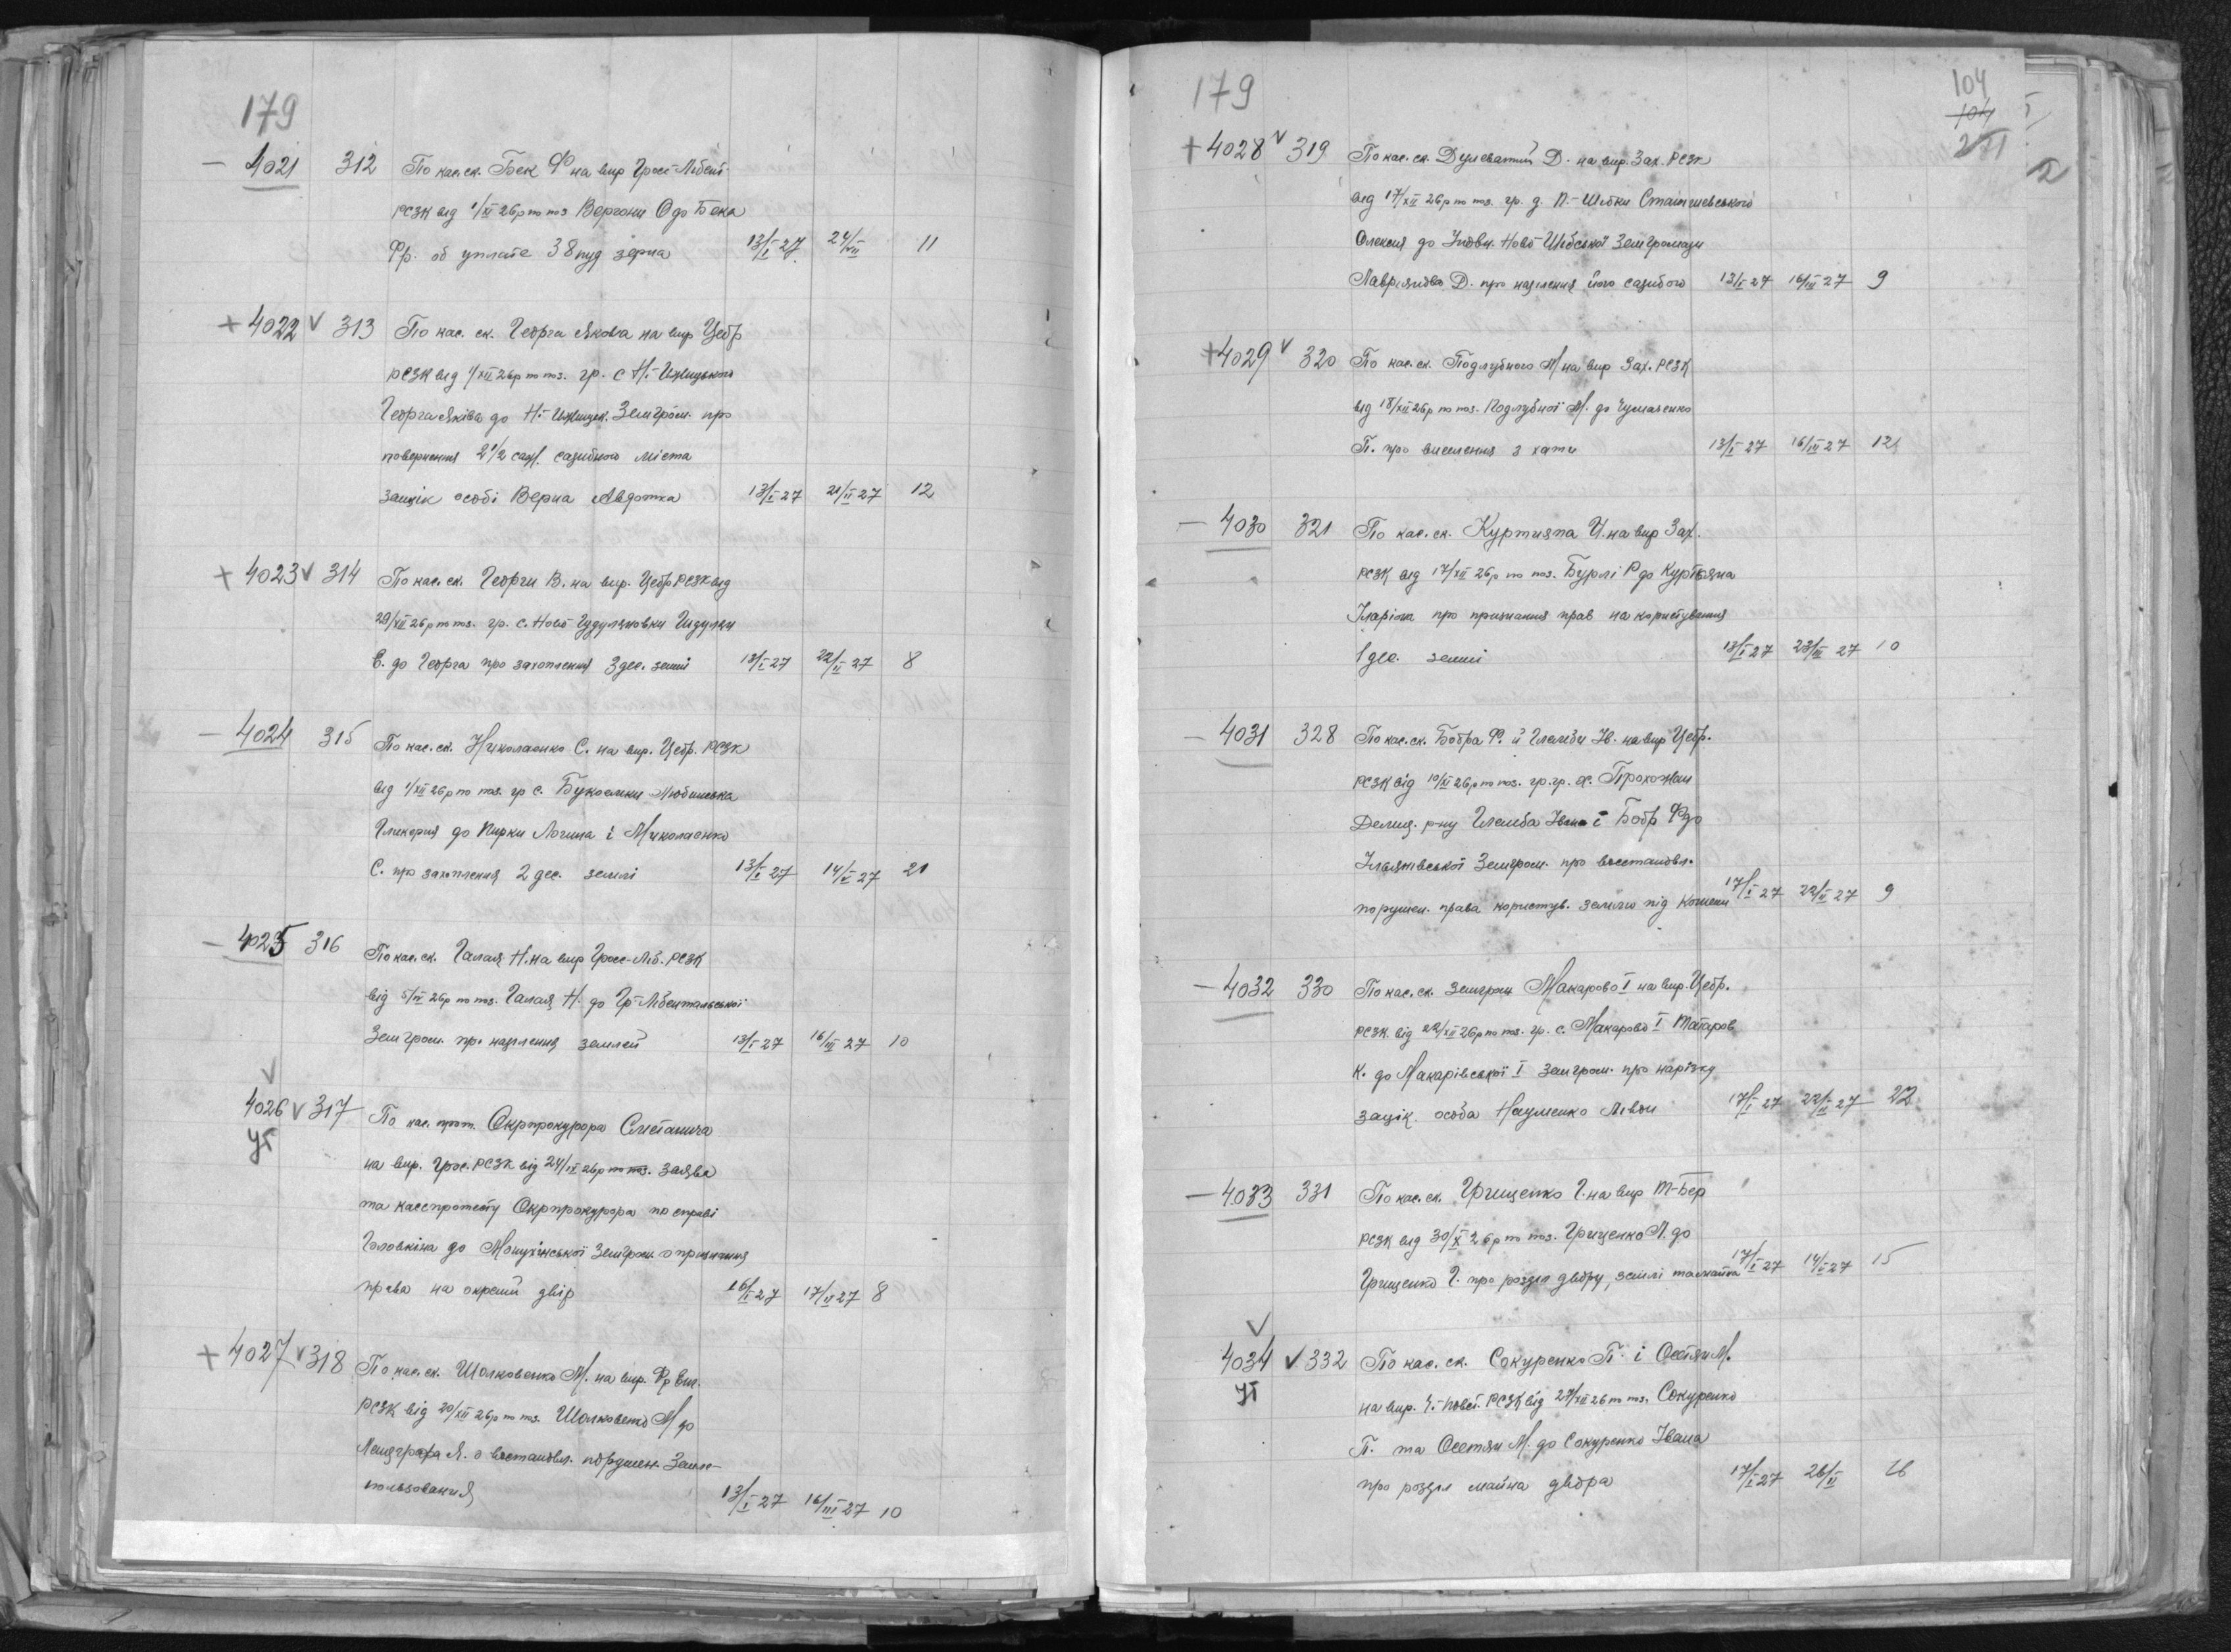 179
— 4021 312 По кас. ск. Бек Ф на вир Грос-Лібент.
РСЗК від 1/XI 26 р по поз Вергони О до Бека
Фр. об уплате 38 пуд зерна 13/I 27 24/VII 11
+ 4022 v 313 По кас. ск. Георга Якова на вир Цебр
РСЗК від 1/XII 26 р по поз. гр. с Н.-
Георга Яківа до Н.-Земгром. про
повернення 2 1/2 саж. садибного міста
зацік особі Верна Авдотка 13/I 27 21/II 27 12
+ 4023 v 314 По кас. ск. Георги В. на вир. Цебр РСЗК від
29/XII 26 р по поз. гр. с. Ново
Е. до Георга про захоплення 3 дес. землі 13/I 27 22/II 27 8
— 4024 315 По кас. ск. Николаенко С. на вир. Цебр. РСЗК
від 1/XII 26 р по поз. гр с.
Гликерия до Пирки Логина і Миколаенко
С. про захоплення 2 дес. землі 13/I 27 14/V 27 21
— 4025 316 По кас. ск. Галая Н. на вир Грос-Ліб. РСЗК
від 5/IV 26 р по поз. Галая Н. до Гр-Лібентальської
Земгром. про наділення землей 13/I 27 16/III 27 10
v
4026 v 317 По кас. прот. Окрпрокурора Сметанича
УТ на вир. Грос. РСЗК від 24/IX 26 р по поз. заява
та касспротесту Окрпрокурора по справі
Головкіна до Земгром. о признання
права на окремий двір 16/I 27 17/II 27 8
+ 4027 v 318 По кас. ск. Шолковенко М. на вир. Фр Евг.
РСЗК від 20/XII 26 р по поз. Шолковенко М до
Я. о востановл. порушен. Земле-
пользования 13/I 27 16/III 27 10
179
104
104
211
I
2
+ 4028 v 319 По кас. ск. Дулеватий Д. на вир. Зах. РСЗК
від 17/XII 26 р по поз. гр. д. П.-
Олексія до Земгромади
Д. про наділення його садибою 13/I 27 16/III 27 9
+ 4029 v 320 По кас. ск. Подлубного М на вир Зах. РСЗК
від 18/XII 26 р по поз. Подлубної М. до Чумаченко
П. про виселення з хати 13/I 27 16/III 27 12
— 4030 321 По кас. ск. Куртияна И. на вир Зах.
РСЗК від 17/XII 26 р по поз. Бурлі Р до Куртіяна
Іларіона про признання прав на користування
1 дес. землі 13/I 27 23/III 27 10
— 4031 328 По кас. ск. Бобра Ф. й Глемби Ів. на вир Цебр.
РСЗК від 10/XI 26 р по поз. гр. гр. х. Прохожан
Демид. р-ну Глемба Івана і Бобр Ф до
Земгром. про востановл.
порушен. права користув. землю під 17/I 27 22/II 27 9
— 4032 330 По кас. ск. земгром Макарово I на вир. Цебр.
РСЗК. від 22/XII 26 р по поз. гр. с. Макарово I Татаров
К. до Макарівської I земгром. про нарізку
зацік. особа Науменко Левон 17/I 27 22/II 27 22
— 4033 331 По кас. ск. Грищенко Г. на вир Т-Бер
РСЗК від 30/X 26 р по поз. Грищенко Л. до
Грищенко Г. про розділ двору, землі та майна 17/I 27 14/V 27 15
v
4034 v 332 По кас. ск. Сокуренко П. і Осетян М.
УТ на вир. РСЗК від 27/XII 26 по поз. Сокуренко
П. та Осетян М. до Сокуренко Івана
про розділ майна двора 17/I 27 26/II 26